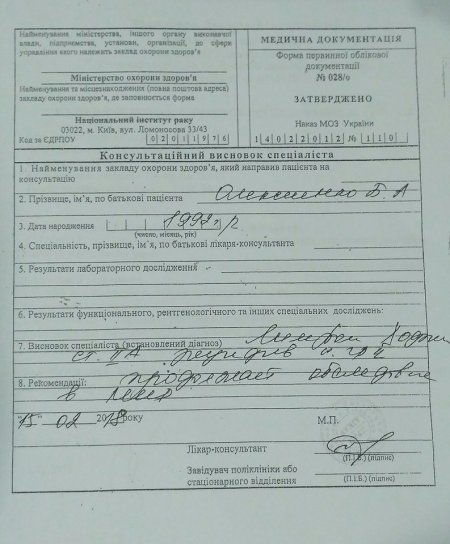 Найменування міністерства, іншого органу виконавчої
влади, підприємства, установи, організації, до сфери
управління якого належить заклад охорони здоров'я
Міністерство охорони здоров'я
Найменування та місцезнаходження (повна поштова адреса)
закладу охорони здоров'я, де заповнюється форма
Національний інститут раку
03022, м. Київ, вул. Ломоносова 33/43
Код за ЄДРПОУ 02011976
МЕДИЧНА ДОКУМЕНТАЦІЯ
Форма первинної облікової
документації
№ 028/о
ЗАТВЕРДЖЕНО
Наказ МОЗ України
14022012 № 110
Консультаційний висновок спеціаліста
1. Найменування закладу охорони здоров'я, який направив пацієнта на
консультацію
2. Прізвище, ім'я, по батькові пацієнта Б. А
3. Дата народження 1992 г/р
(число, місяць, рік)
4. Спеціальність, прізвище, ім'я, по батькові лікаря-консультанта
5. Результати лабораторного дослідження
6. Результати функціонального, рентгенологічного та інших спеціальних досліджень:
7. Висновок спеціаліста (встановлений діагноз)
ст. IIA
8. Рекомендації: продолжает
в
"15" 02 2019 року М.П.
Лікар-консультант
(П.І.Б.) (підпис)
Завідувач поліклініки або
стаціонарного відділення (П.І.Б.) (підпис)